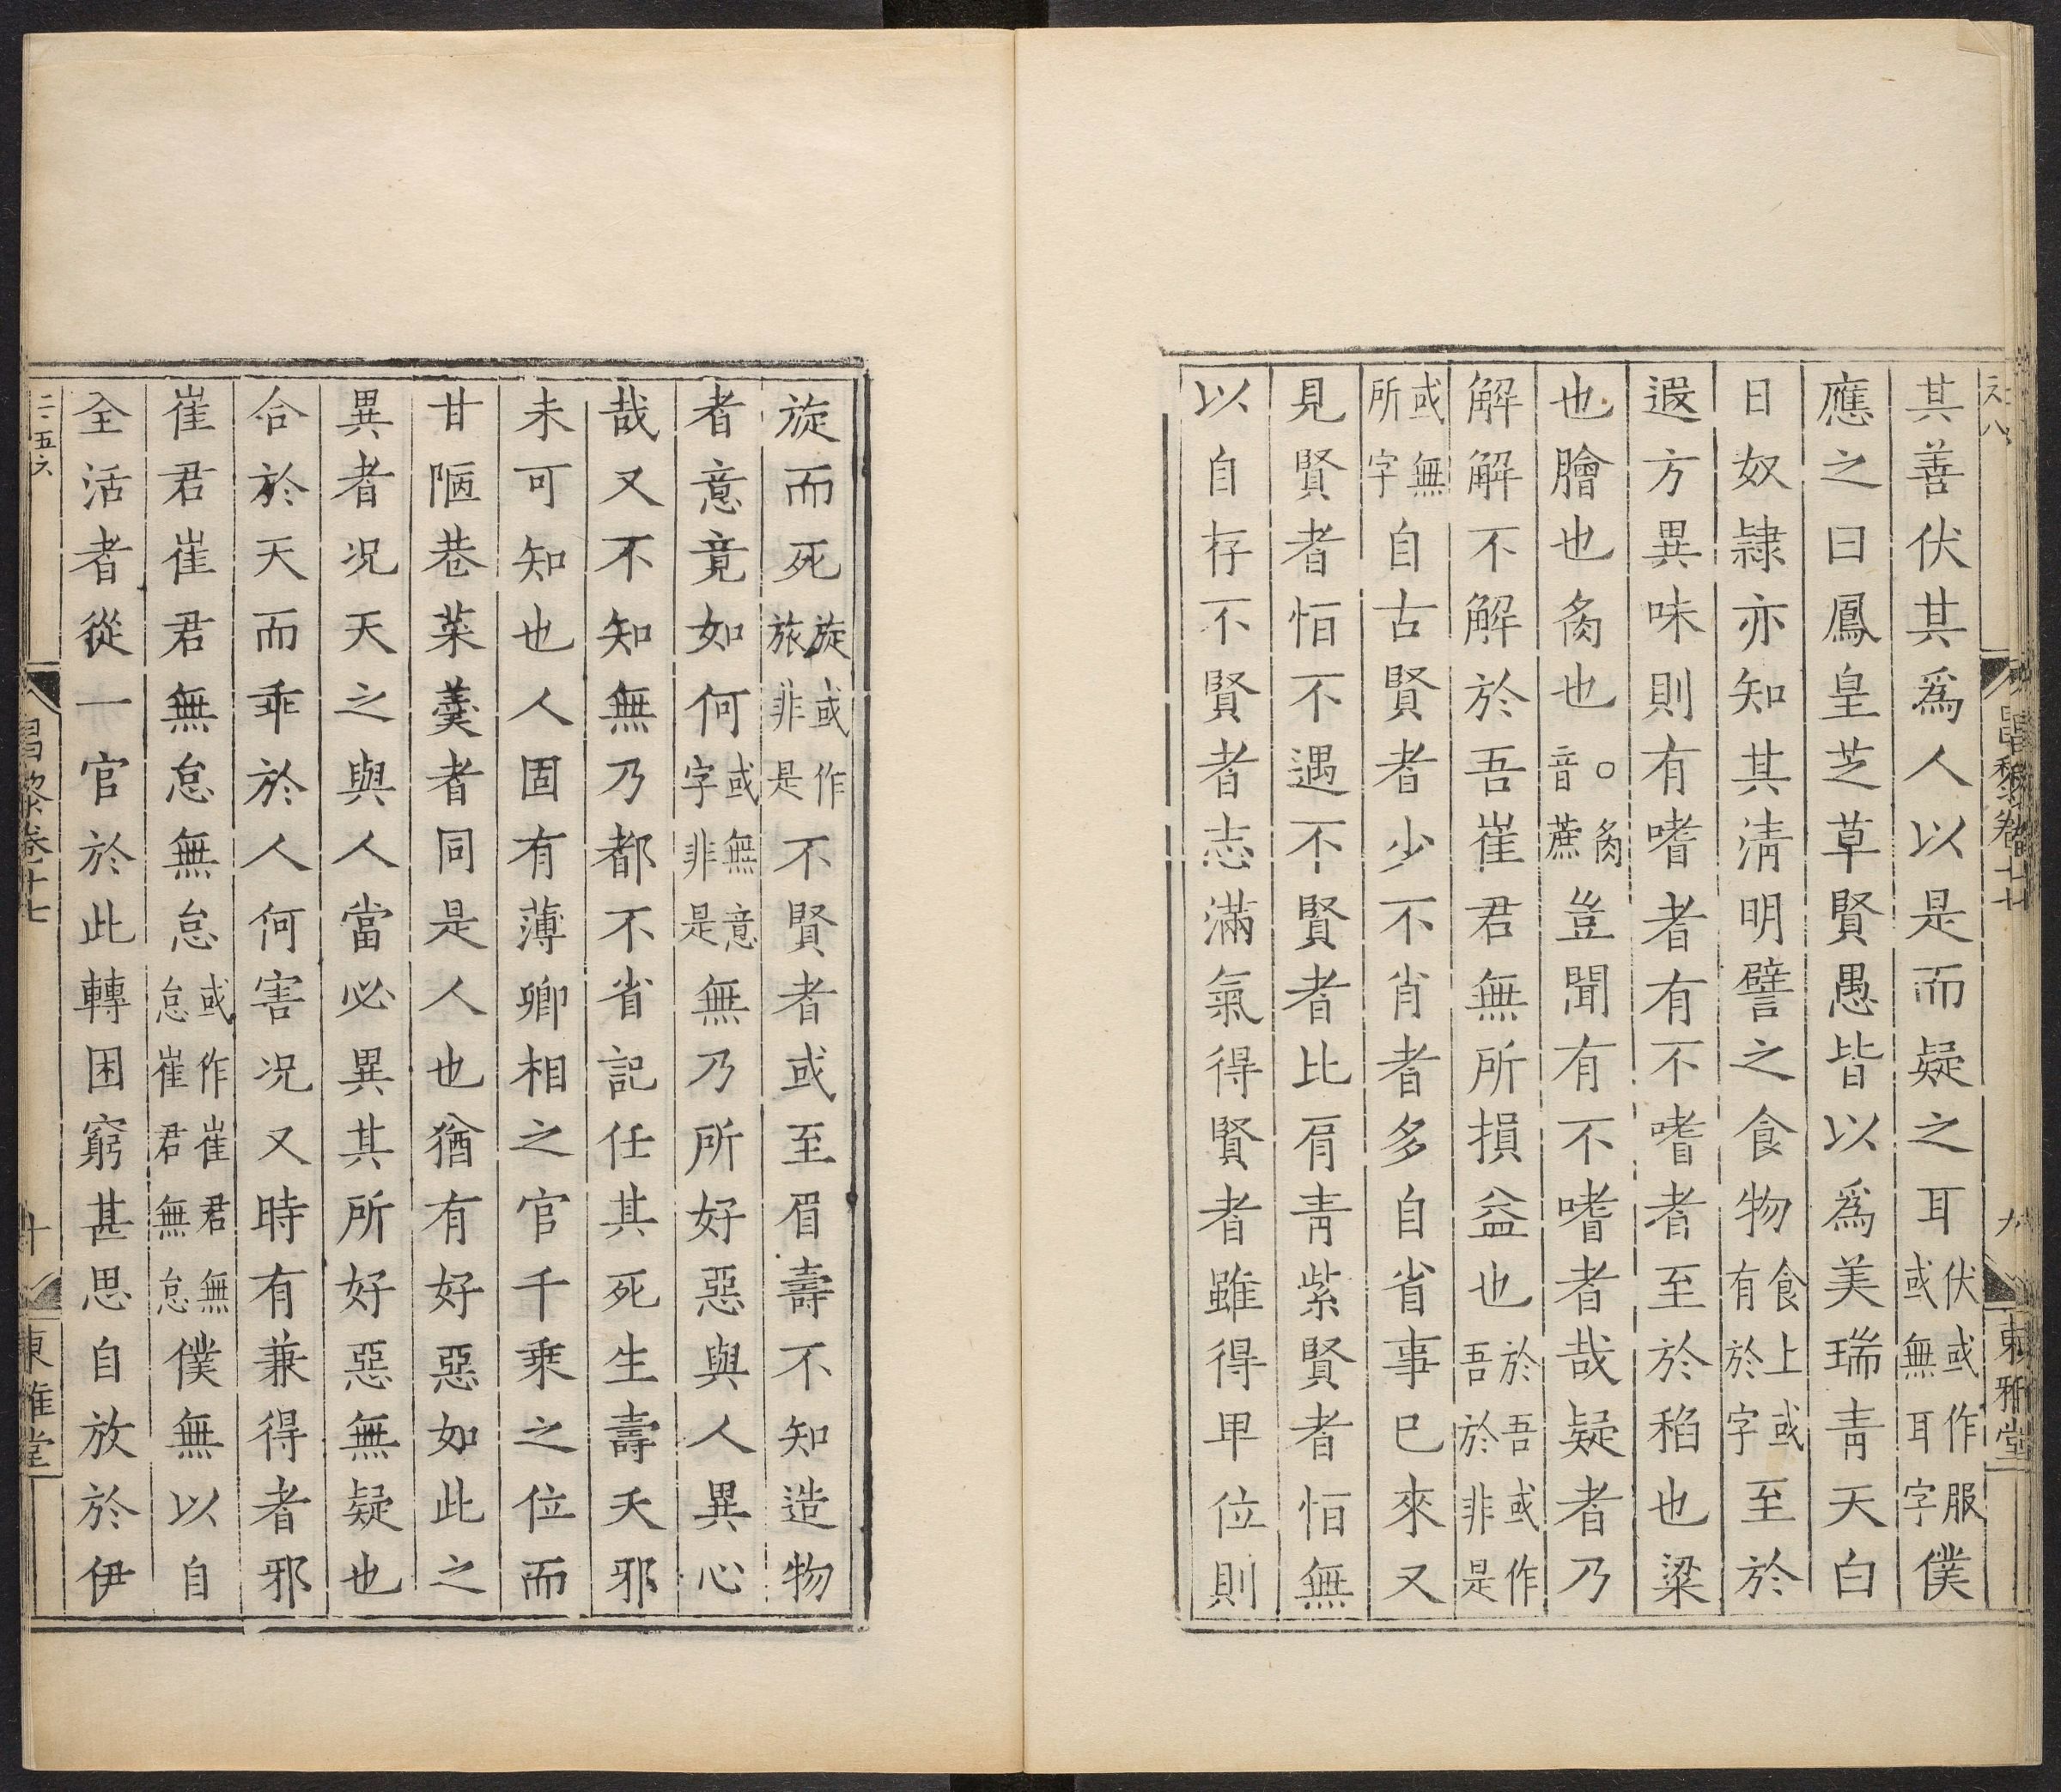 其善伏其爲人以是而疑之耳伏或作服或無耳字僕
應之曰鳳皇芝草賢愚皆以爲美瑞靑天白
日奴隷亦知其淸明譬之食物食上或有於字至於
遐方異味則有嗜者有不嗜者至於稻也粱
也膾也炙也○炙音蔗豈聞有不嗜者哉疑者乃
解解不解於吾崔君無所損益也於吾或作吾於非是
或無所字自古賢者少不肖者多自省事已來又
見賢者恒不遇不賢者比肩靑紫賢者恒無
以自存不賢者志滿氣得賢者雖得卑位則
昌黎卷十七
九
東雅堂
旋而死旋或作旅非是不賢者或至眉壽不知造物
者意竟如何或無意字非是無乃所好惡與人異心
哉又不知無乃都不省記任其死生壽夭邪
未可知也人固有薄卿相之官千乘之位而
甘陋巷菜羹者同是人也猶有好惡如此之
異者况天之與人當必異其所好惡無疑也
合於天而乖於人何害况又時有兼得者邪
崔君崔君無怠無怠或作崔君無怠崔君無怠僕無以自
全活者從一官於此轉困窮甚思自放於伊
二五六
昌黎卷十七
十
東雅堂